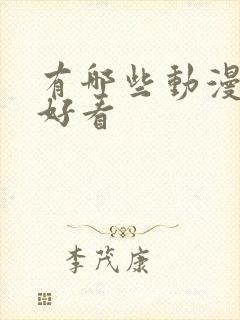 有哪些動漫
好看
李茂康